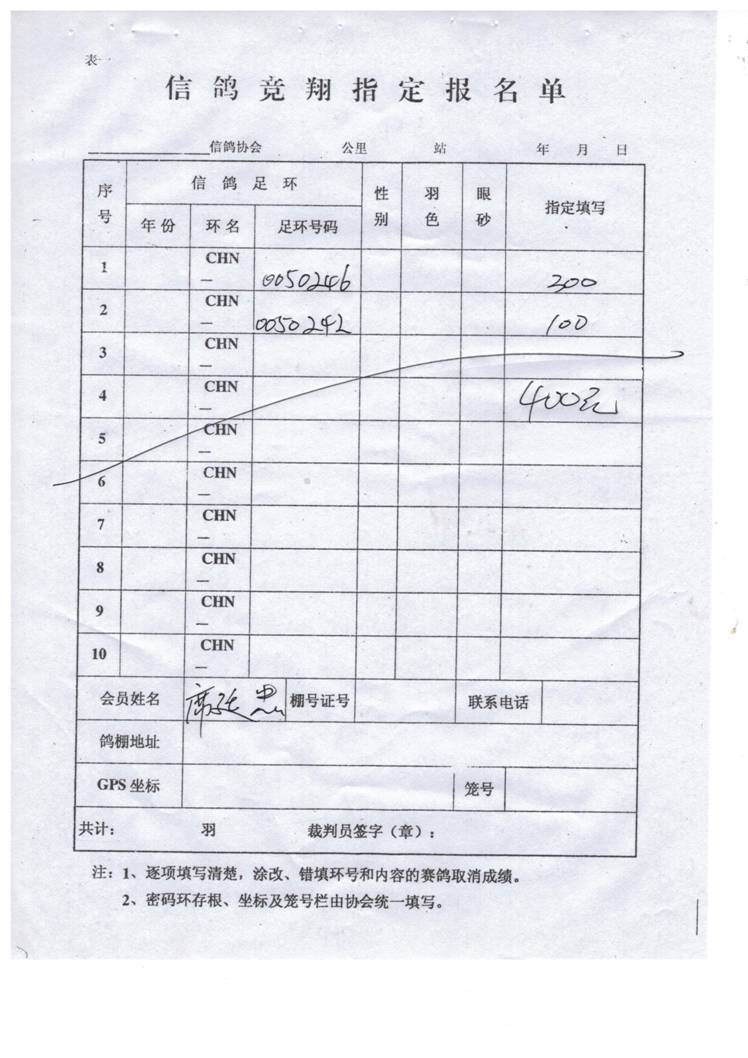 表一
信鸽竞翔指定报名单
信鸽协会 公里 站 年 月 日
序号 信鸽足环 性别 羽色 眼砂 指定填写
年份 环名 足环号码
1 CHN — 0050246 200
2 CHN — 0050242 100
3 CHN —
4 CHN — 400元
5 CHN —
6 CHN —
7 CHN —
8 CHN —
9 CHN —
10 CHN —
会员姓名 席延忠 棚号证号 联系电话
鸽棚地址
GPS 坐标 笼号
共计： 羽 裁判员签字（章）：
注：1、逐项填写清楚，涂改、错填环号和内容的赛鸽取消成绩。
2、密码环存根、坐标及笼号栏由协会统一填写。